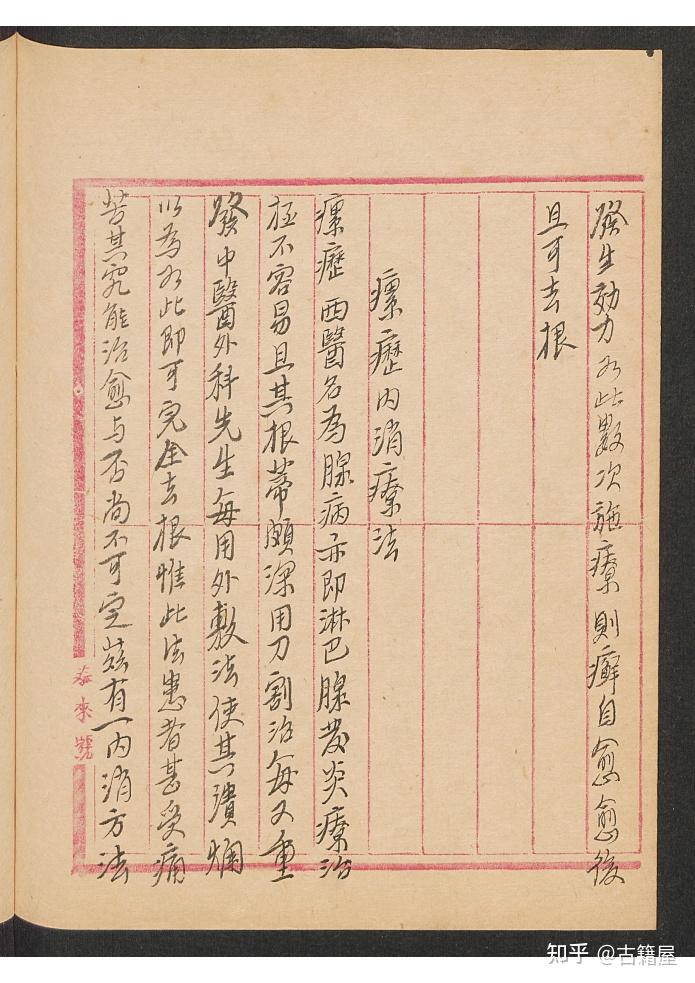 發生効力如此數次施療則癬自愈愈後
且可去根
瘰癧內消療法
瘰癧西醫名為腺病亦即淋巴腺發炎療治
極不容易且其根蒂頗深用刀割治每又重
發中醫外科先生每用外敷法使其潰爛
以為如此即可完全去根惟此法患者甚受痛
苦其究能治愈与否尚不可定茲有一內消方法
泰來號
知乎 @古籍屋